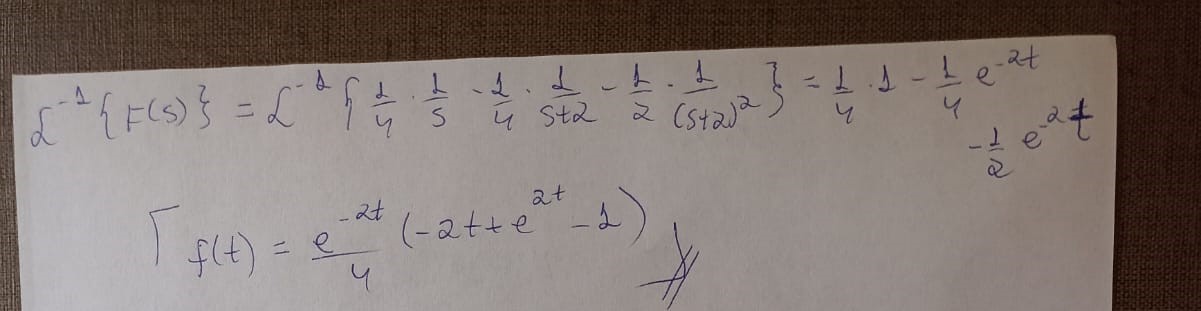 ℒ⁻¹{F(s)} = ℒ⁻¹{1/4 · 1/s - 1/4 · 1/(s+2) - 1/2 · 1/(s+2)²} = 1/4 · 1 - 1/4 e^(-2t)
- 1/2 e^(-2t)
f(t) = e^(-2t)/4 (-2t + e^(2t) - 1)